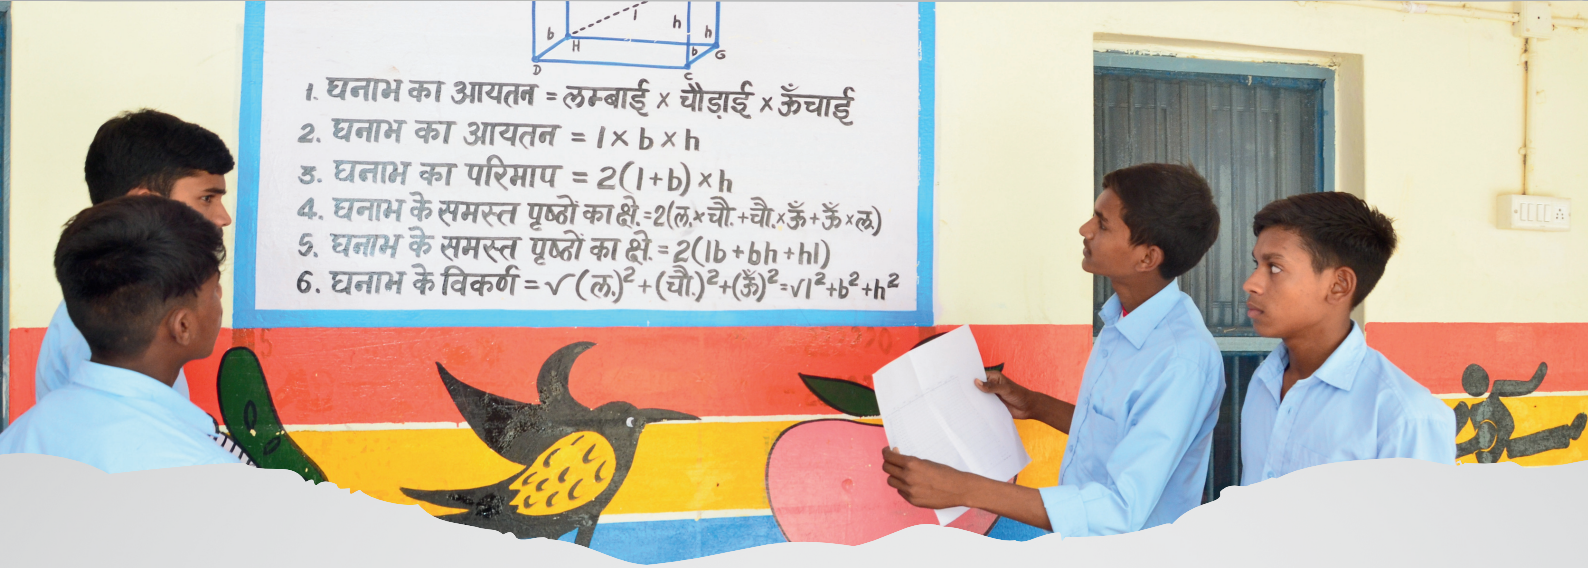 l
h
h
b
H
b
G
D
C
1. घनाभ का आयतन = लम्बाई × चौड़ाई × ऊँचाई
2. घनाभ का आयतन = l × b × h
3. घनाभ का परिमाप = 2(l+b) × h
4. घनाभ के समस्त पृष्ठों का क्षे.=2(ल.×चौ.+चौ.×ऊँ+ऊँ×ल.)
5. घनाभ के समस्त पृष्ठों का क्षे.= 2(lb+bh+hl)
6. घनाभ के विकर्ण = √(ल.)²+(चौ.)²+(ऊँ)²=√l²+b²+h²